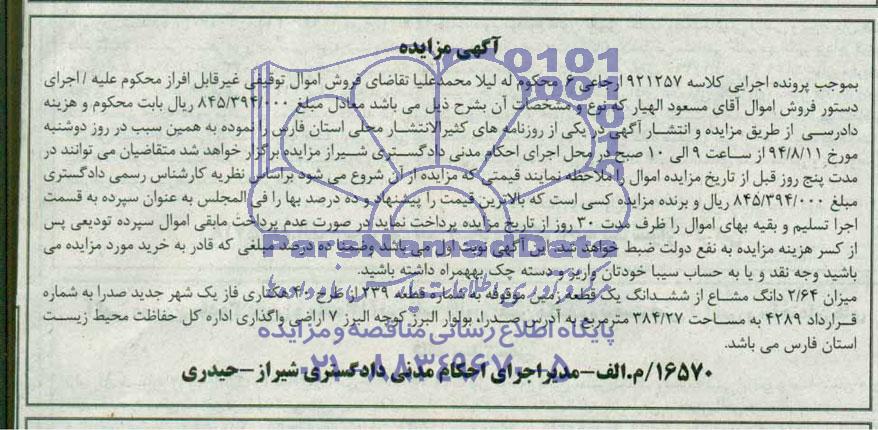 آگهی مزایده
بموجب پرونده اجرایی کلاسه ۹۲۱۲۵۷ ارجاعی ۶ محکوم له لیلا محمدعلیا تقاضای فروش اموال توقیفی غیرقابل افراز محکوم علیه /اجرای
دستور فروش اموال آقای مسعود الهیار که نوع و مشخصات آن بشرح ذیل می باشد معادل مبلغ ۸۴۵/۳۹۴/۰۰۰ ریال بابت محکوم و هزینه
دادرسی از طریق مزایده و انتشار آگهی در یکی از روزنامه های کثیرالانتشار محلی استان فارس را نموده به همین سبب در روز دوشنبه
مورخ ۹۴/۸/۱۱ از ساعت ۹ الی ۱۰ صبح در محل اجرای احکام مدنی دادگستری شیراز مزایده برگزار خواهد شد متقاضیان می توانند در
مدت پنج روز قبل از تاریخ مزایده اموال را ملاحظه نمایند قیمتی که مزایده از آن شروع می شود براساس نظریه کارشناس رسمی دادگستری
مبلغ ۸۴۵/۳۹۴/۰۰۰ ریال و برنده مزایده کسی است که بالاترین قیمت را پیشنهاد و ده درصد بها را فی المجلس به عنوان سپرده به قسمت
اجرا تسلیم و بقیه بهای اموال را ظرف مدت ۳۰ روز از تاریخ مزایده پرداخت نماید در صورت عدم پرداخت مابقی اموال سپرده تودیعی پس
از کسر هزینه مزایده به نفع دولت ضبط خواهد شد. این آگهی نوبت اول می باشد وضمنا ده درصد مبلغی که قادر به خرید مورد مزایده می
باشید وجه نقد و یا به حساب سیبا خودتان واریز و دسته چک بههمراه داشته باشید.
میزان ۲/۶۴ دانگ مشاع از ششدانگ یک قطعه زمین موقوفه به شماره قطعه ۲۳۹ از طرح ۴۰ هکتاری فاز یک شهر جدید صدرا به شماره
قرارداد ۴۲۸۹ به مساحت ۳۸۴/۲۷ مترمربع به آدرس صدرا، بولوار البرز کوچه البرز ۷ اراضی واگذاری اداره کل حفاظت محیط زیست
استان فارس می باشد.
۱۶۵۷۰/م.الف-مدیر اجرای احکام مدنی دادگستری شیراز-حیدری
0101
ParsNamadData
پایگاه اطلاع رسانی مناقصه و مزایده
۰۲۱-۸۸۳۴۹۶۷۰-۵